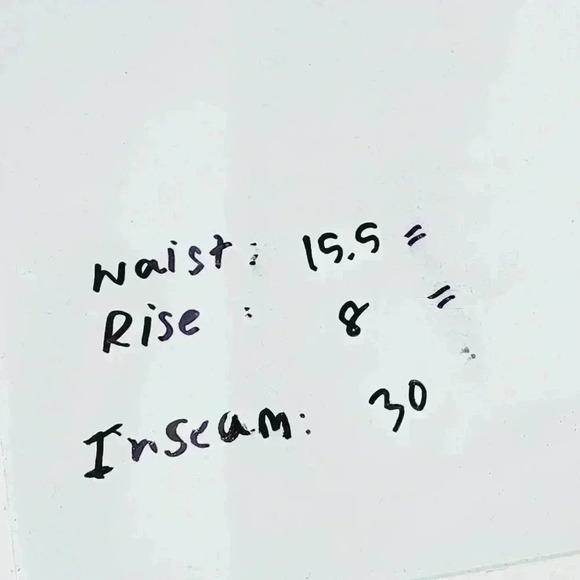 Waist: 15.5 "
Rise : 8 "
Inseam: 30